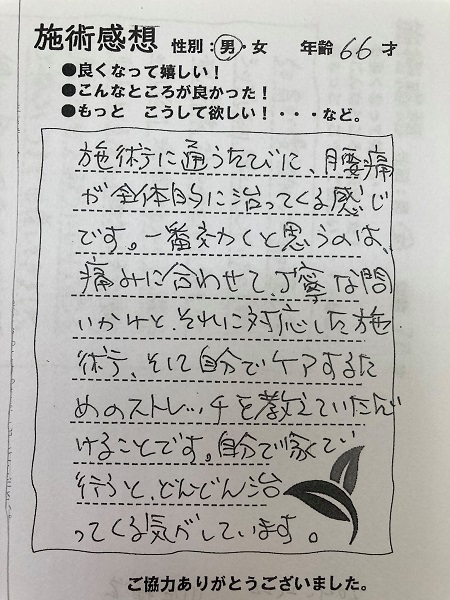 施術感想 性別：男・女 年齢 66 才
●良くなって嬉しい！
●こんなところが良かった！
●もっと こうして欲しい！・・・など。
施術に通うたびに、腰痛
が全体的に治ってくる感じ
です。一番効くと思うのは、
痛みに合わせて、丁寧な問
いかけと、それに対応した施
術、そして自分でケアするた
めのストレッチを教えていただ
けることです。自分で家でい
行うと、どんどん治
ってくる気がしています。
ご協力ありがとうございました。